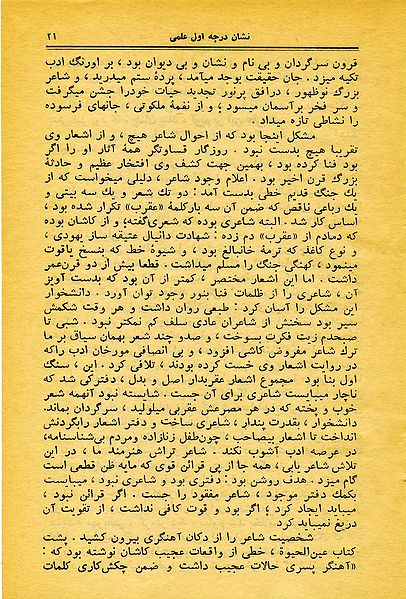 نشان درجه اول علمی ۲۱
قرون سرگردان و بی نام و نشان و بی دیوان بود ، بر اورنگ ادب
تکیه میزد . جان حقیقت بوجد میآمد ، پرده ستم میدرید ، و شاعر
بزرگ نوظهور ، درافق پرنور تجدید حیات خودرا جشن میگرفت
و سر فخر برآسمان میسود ؛ و از نفمهٔ ملکوتی ، جانهای فرسوده
را نشاطی تازه میداد .
مشکل اینجا بود که از احوال شاعر هیچ ، و از اشعار وی
تقریبا هیچ بدست نبود . روزگار قساوتگر همهٔ آثار او را اگر
بود فنا کرده بود ، بهمین جهت کشف وی افتخار عظیم و حادثهٔ
بزرگ قرن اخیر بود . اعلام وجود شاعر ، دلیلی میخواست که از
یك جنگ قدیم خطی بدست آمد : دو تك شعر و یك سه بیتی و
یك رباعی ناقص که ضمن آن سه بارکلمهٔ «عقرب» تکرار شده بود ،
اساس کار شد . البته شاعری بوده که شعری‌گفته؛ و از کاشان بوده
که دمادم از «عقرب» دم زده : شهادت دانیال عتیقه ساز یهودی ،
و نوع کاغذ که ترمهٔ خانبالغ بود ، و شیوهٔ خط که بنسخ یاقوت
مینمود ، کهنگی جنگ را مسلم میداشت . قطعا بیش از دو قرن‌عمر
داشت . اما این اشعار مختصر ، کمتر از آن بود که بدست آویز
آن ، شاعری را از ظلمات فنا بنور وجود توان آورد . دانشخوار
این مشکل را آسان کرد : طبعی روان داشت و هر وقت شکمش
سیر بود سخنش از شاعران عادی سلف کم نمکتر نبود . شبی تا
صبحدم زیت فکرت بسوخت ، و صدو چند شعر بهمان سیاق بر ما
ترك شاعر مفروض کاشی افزود ، و بی انصافی مورخان ادب راکه
در روایت اشعار وی خست کرده بودند ، تلافی کرد . این ، سنگ
اول بنا بود مجموع اشعار عقربدار اصل و بدل ، دفترکی شد که
ناچار میبایست شاعری برای آن جست . شایسته نبود آنهمه شعر
خوب و پخته که در هر مصرعش عقربی میلولید ، سرگردان بماند.
دانشخوار ، بقدرت پندار ، شاعری ساخت و دفتر اشعار رابگردنش
انداخت تا اشعار بیصاحب ، چون‌طفل زنازاده ومردم بی‌شناسنامه،
در عرصه ادب آشوب نکند . شاعر تراش هنرمند ما ، در این
تلاش شاعر یابی ، همه جا از پی قرائن قوی که مایه ظن قطعی است
گام میزد . هدف روشن بود : دفتری بود و شاعری نبود ، میبایست
بکمك دفتر موجود ، شاعر مفقود را جست . اگر قرائن نبود ،
میباید ایجاد کرد ؛ اگر بود و قوت کافی نداشت ، از تقویت آن
دریغ نمیباید کرد
شخصیت شاعر را از دکان آهنگری بیرون کشید . پشت
کتاب عین‌الحیوة ، خطی از واقعات عجیب کاشان نوشته بود که :
«آهنگر پسری حالات عجیب داشت و ضمن چکش‌کاری کلمات